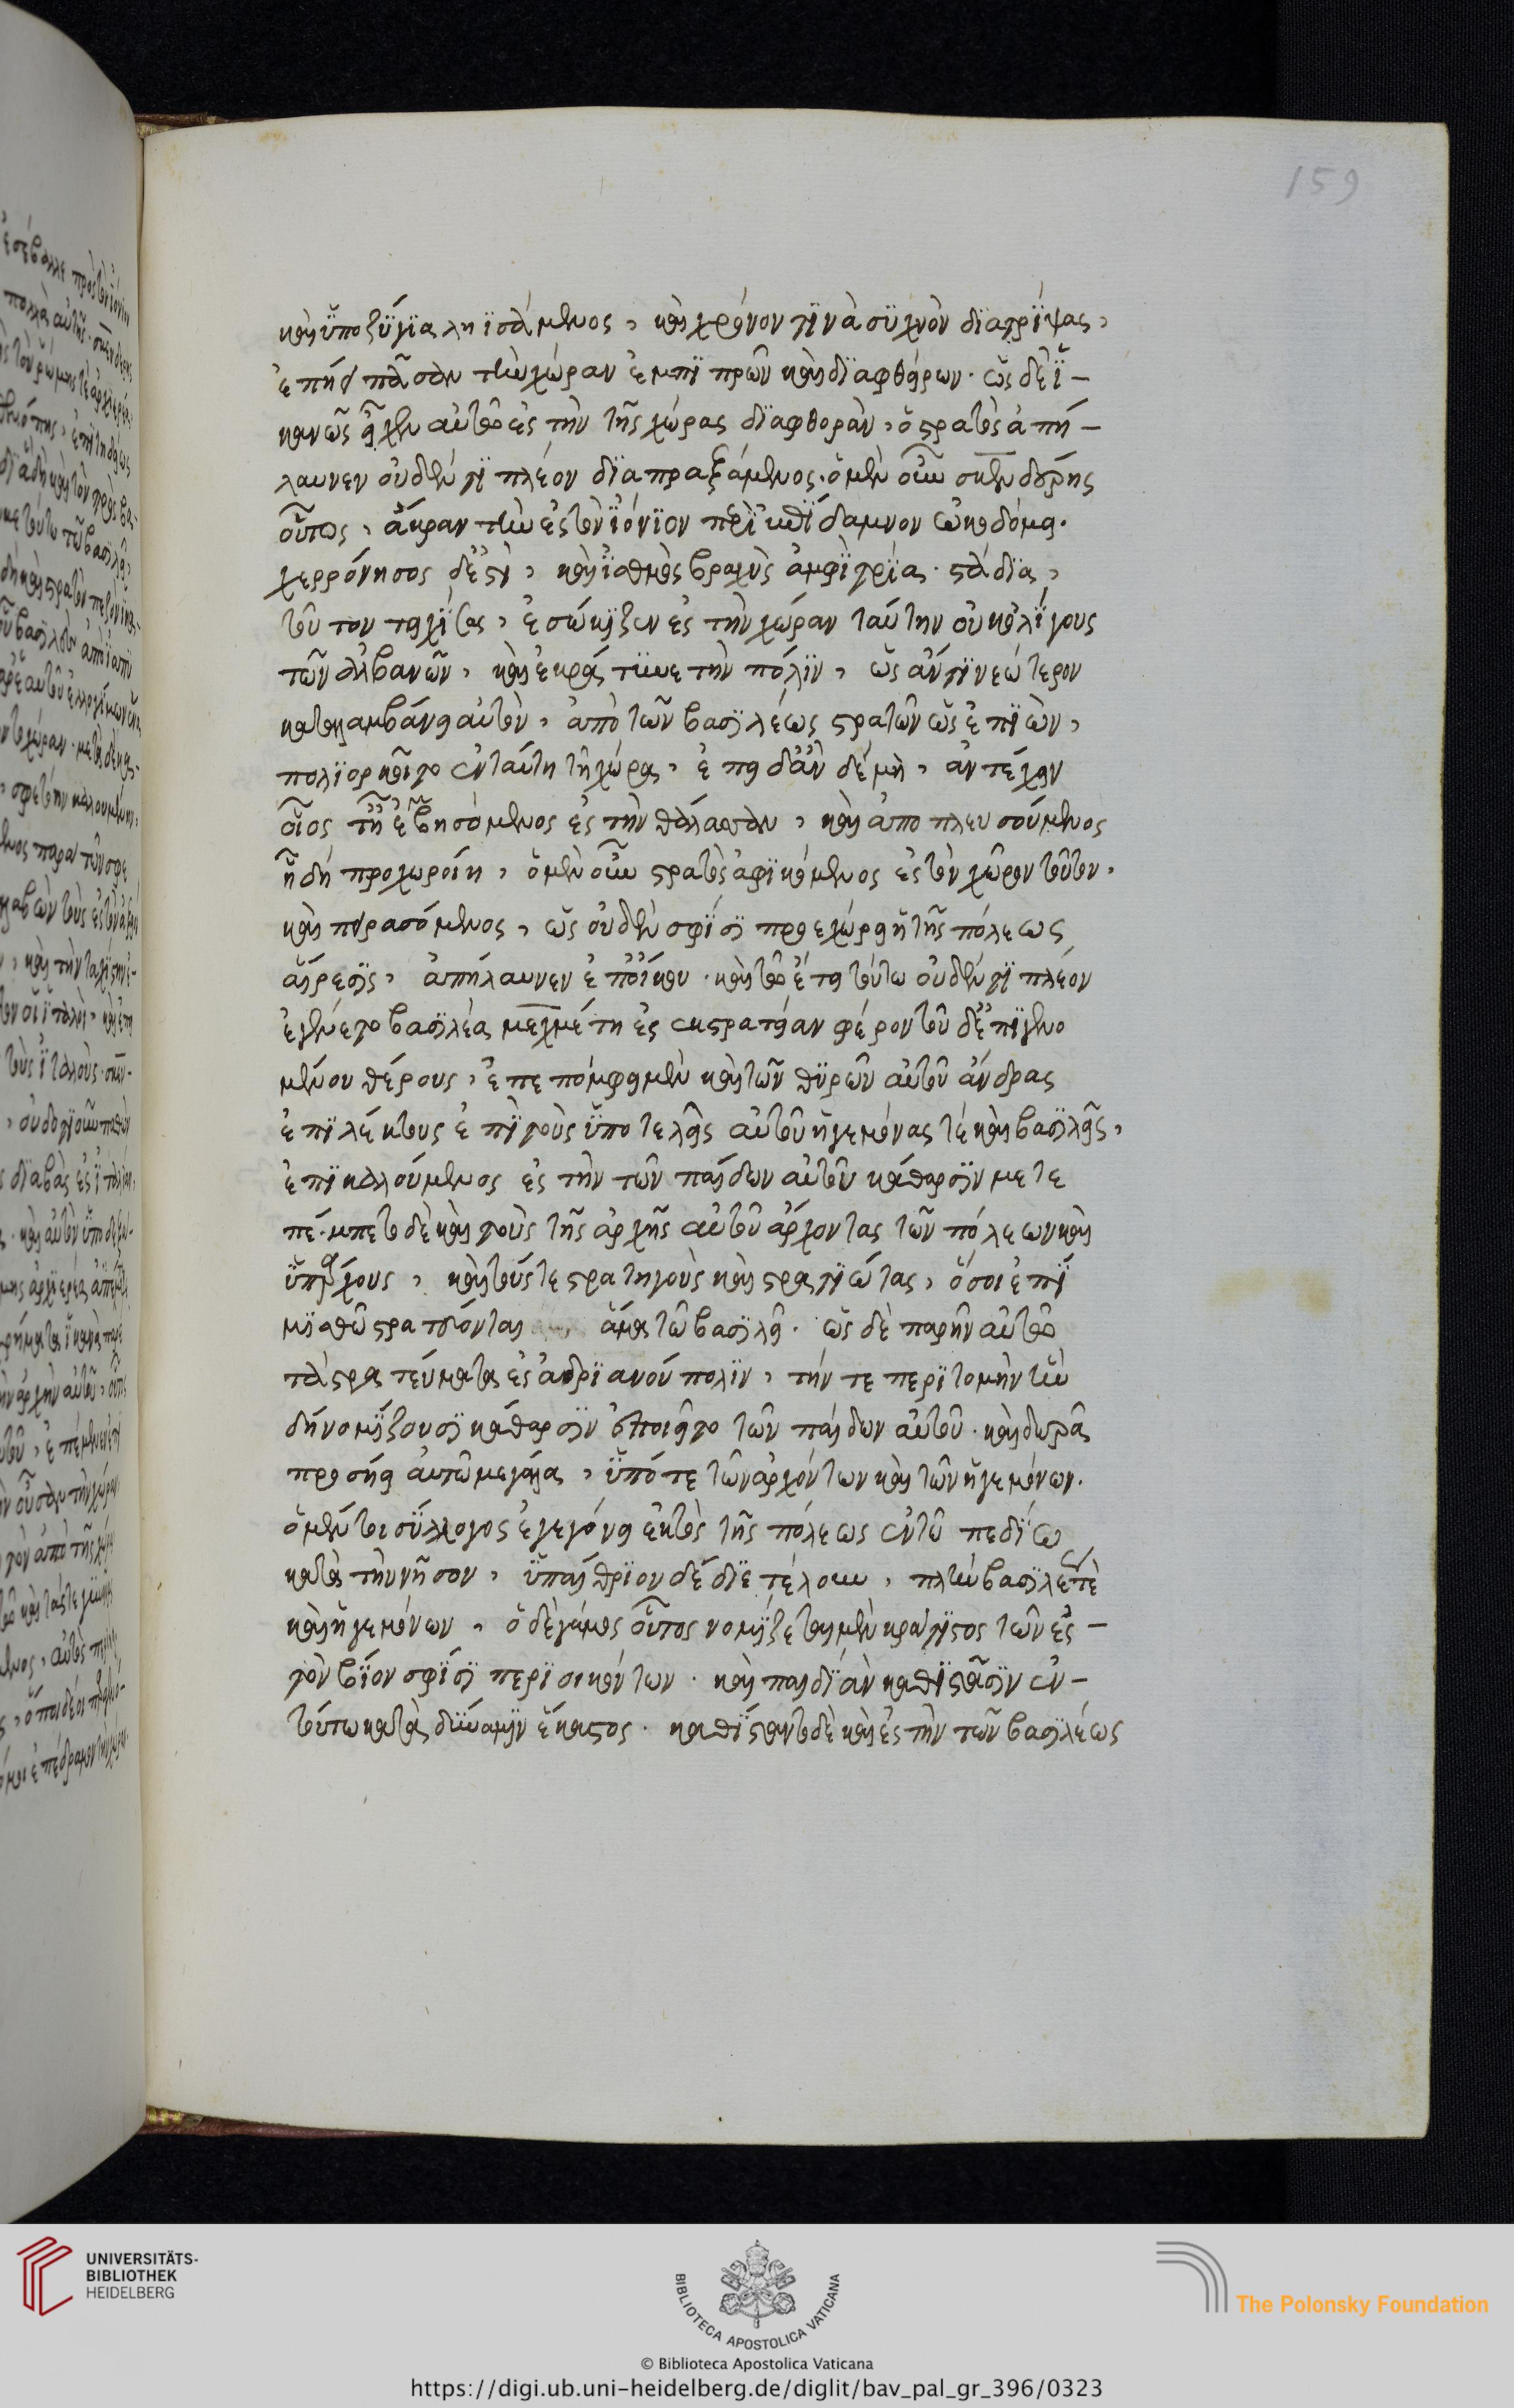 159
καὶ ὑποζύγια ληϊσάμενος, καὶ χρόνον τινὰ συχνὸν διατρίψας,
ἐπῄει πᾶσαν τὴν χώραν ἐμπιπρῶν καὶ διαφθείρων. ὡς δὲ ἱ-
κανῶς εἶχεν αὐτῷ ἐς τὴν τῆς χώρας διαφθορὰν, ὁ στρατὸς ἀπή-
λαυνεν οὐδέν τι πλέον διαπραξάμενος. ὁ μὲν οὖν σκενδέρης
οὗτος, ἄκραν τὴν ἐς τὸν ἰόνιον περὶ ἐπίδαμνον ὠκοδόμει.
χερρόνησος δέ ἐστι, καὶ ἰσθμὸς βραχὺς ἀμφὶ τρία στάδια,
τοῦτον τειχίσας, ἐσῴκιζεν ἐς τὴν χώραν ταύτην οὐκ ὀλίγους
τῶν ἀλβανῶν, καὶ ἐκράτυνε τὴν πόλιν, ὡς ἄν τι νεώτερον
καταλαμβάνει αὐτὸν, ἀπὸ τῶν βασιλέως στρατῶν ὡς ἐπιὼν,
πολιορκοῖτο ἐν ταύτῃ τῇ χώρᾳ, ἐπειδὰν δέ μὴ, ἀντέχειν
οἷός τε ᾖ ἐμβησόμενος ἐς τὴν θάλασσαν, καὶ ἀποπλευσούμενος
ᾗ δὴ προχωροίη, ὁ μὲν οὖν στρατὸς ἀφικόμενος ἐς τὸν χῶρον τοῦτον.
καὶ πειρασόμενος, ὡς οὐδὲν σφίσι προεχώρει ἡ τῆς πόλεως
αἵρεσις, ἀπήλαυνεν ἐπ' οἴκου. καὶ τῷ ἔτει τούτῳ οὐδέν τι πλέον
ἐγένετο βασιλέα μεχμέτη ἐς ἐκστρατείαν φέρον τοῦ δ' ἐπιγενο
μένου θέρους, ἐπεπόμφει μὲν καὶ τῶν θυρῶν αὐτοῦ ἄνδρας
ἐπιλέκτους ἐπὶ τοὺς ὑποτελεῖς αὐτοῦ ἡγεμόνας τέ καὶ βασιλεῖς,
ἐπικαλούμενος ἐς τὴν τῶν παίδων αὐτοῦ κάθαρσιν μετε
πέμπετο δὲ καὶ τοὺς τῆς ἀρχῆς αὐτοῦ ἄρχοντας τῶν πόλεων καὶ
ὑπάρχους, καὶ τούς τε στρατηγοὺς καὶ στρατιώτας, ὅσοι ἐπὶ
μισθῷ στρατεύονται ἅμα τῷ βασιλεῖ. ὡς δὲ παρῆν αὐτῷ
τὰ στρατεύματα ἐς ἀδριανούπολιν, τήν τε περιτομὴν ἣν
δὴ νομίζουσι κάθαρσιν ἐποιεῖτο τῶν παίδων αὐτοῦ. καὶ δῶρα
προσῄει αὐτῷ μεγάλα, ὑπό τε τῶν ἀρχόντων καὶ τῶν ἡγεμόνων.
ὁ μέν τοι σύλλογος ἐγεγόνει ἐκτὸς τῆς πόλεως ἐν τῷ πεδίῳ
κατὰ τὴν νῆσον, ὑπαίθριον δὲ διετέλουν, πλὴν βασιλέως τὲ
καὶ ἡγεμόνων, ὁ δὲ γάμος οὗτος νομίζεται μὲν κράτιστος τῶν ἐς-
τὸν βίον σφίσι περισηκόντων. καὶ παιδιὰν καθιστᾶσιν ἐν-
τούτῳ κατὰ δύναμιν ἕκαστος. καθίσταντο δὲ καὶ ἐς τὴν τῶν βασιλέως
UNIVERSITÄTS-
BIBLIOTHEK
HEIDELBERG
BIBLIOTECA APOSTOLICA VATICANA
The Polonsky Foundation
© Biblioteca Apostolica Vaticana
https://digi.ub.uni-heidelberg.de/diglit/bav_pal_gr_396/0323